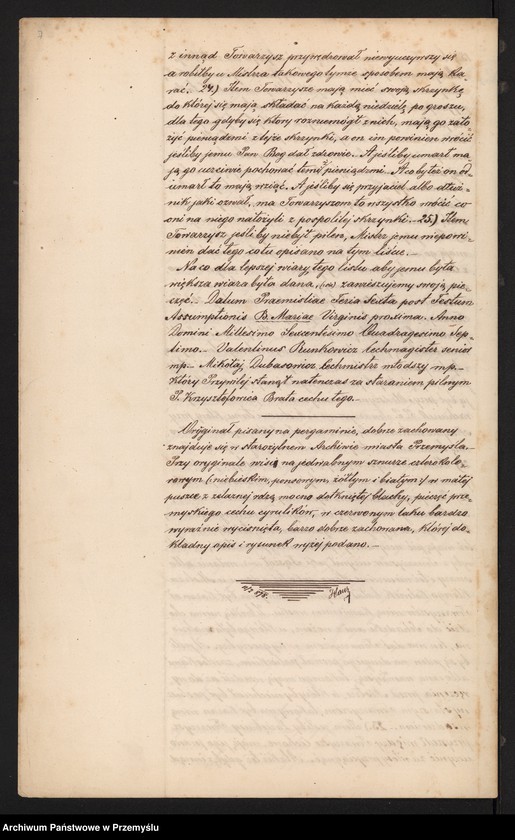 z innąd Towarzysz przywędrował niewyuczywszy się
a robiłby u Mistrza takowego tymże sposobem mają ka
rać. 24.) Item Towarzysze mają mieć swoją skrzynkę
do której się mają składać na każdą niedzielę po groszu,
dla tego gdyby się który rozniemógł z nich, mają go zało-
żyć pieniądzmi z tejże skrzynki, a on im powinien wrócić
jeśliby jemu Pan Bóg dał zdrowie. A jeśliby umarł ma
ją go uczciwie pochować temiż pieniądzmi. A co by też on od
umarł to mają wziąć. A jeśliby się przyjaciel albo dłuż-
nik jaki ozwał, ma Towarzyszom to wszystko wrócić co
oni na niego nałożyli z pospolitej skrzynki. 25.) Item
Towarzysz jeśliby niebył pilen, Mistrz jemu niepowi-
nien dać tego co tu opisano na tym liście.
Na co dla lepszej wiary, tego listu aby jemu była
większa wiara była dana, (sic) zawieszujemy swoją pie-
częć. Datum Praemisliae Feria Sexta post Festum
Assumptionis B. Mariae Virginis proxima. Anno
Domini Millesimo Sexcentesimo Quadragesimo Sep-
timo. Valentinus Runkowicz Cechmagister senior
mp. Mikołaj Dubasowicz Cechmistrz młodszy mp.
Który Przywilej stanął natenczas za staraniem pilnym
P. Krzysztofowica Brata cechu tego.
Oryginał pisany na pergaminie, dobrze zachowany
znajduje się w starożytnem Archiwie miasta Przemyśla.
Przy oryginale wisi na jedwabnym sznurze czterokolo-
rowym (niebieskim, ponsowym, żółtym i białym) w małej
puszce z żelaznej rdzą mocno dotkniętej blachy, pieczęć prze-
myskiego cechu cyrulików, w czerwonym laku bardzo
wyraźnie wyciśnięta, barzo dobrze zachowana, której do-
kładny opis i rysunek wyżej podano.
Archiwum Państwowe w Przemyślu